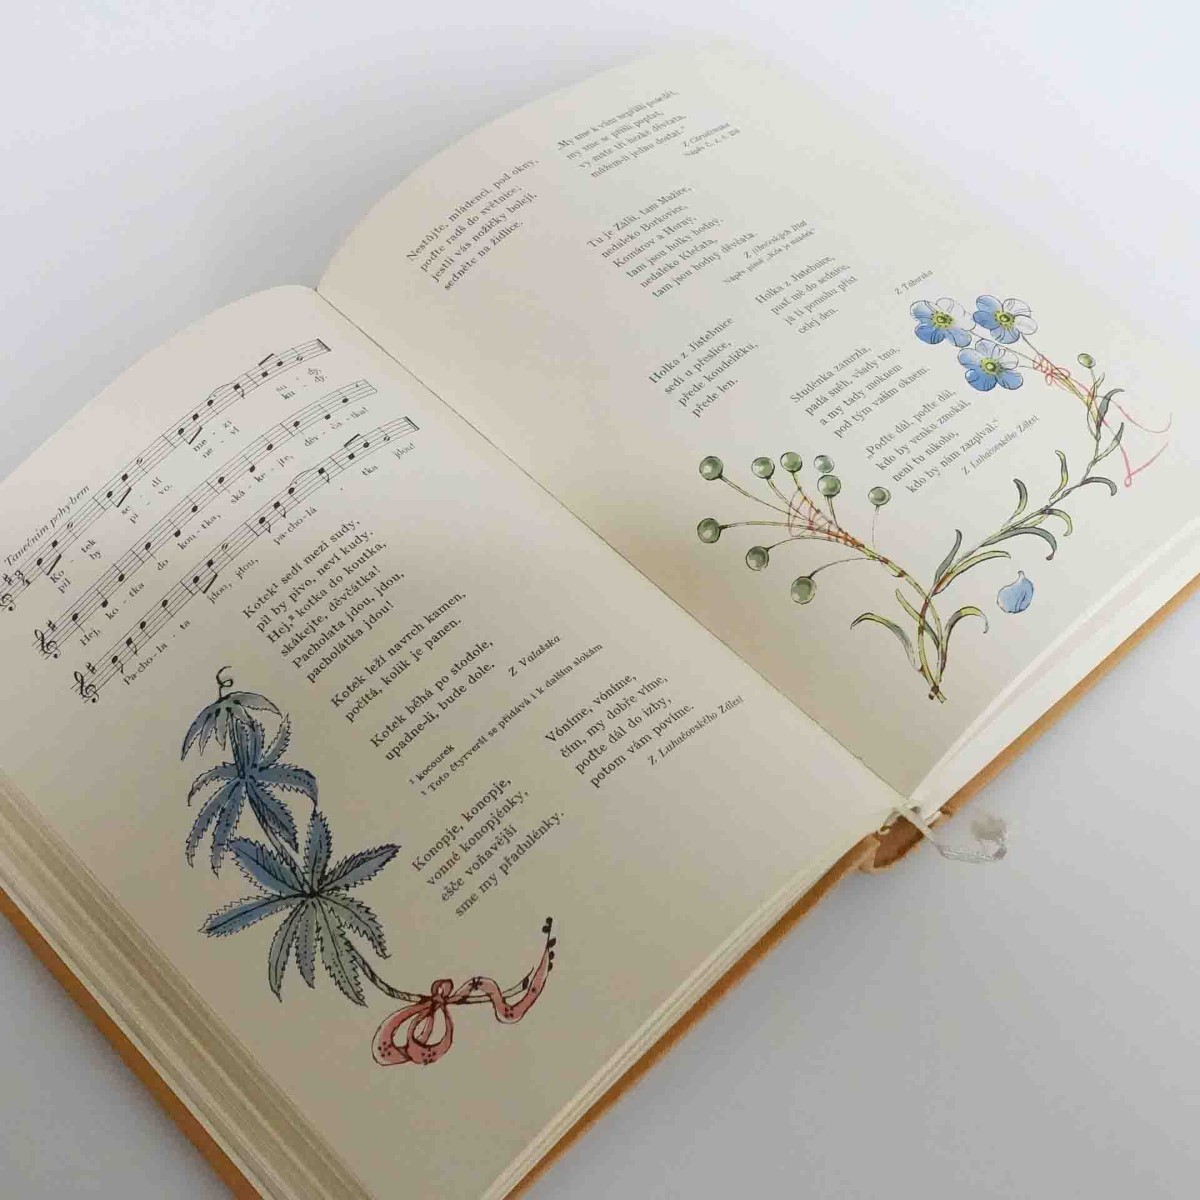 Tanečním pohybem
Ko - tek se - dí me - zi su - dy,
pil by pi - vo, ne - ví ku - dy.
Hej, ko - tka do kou - tka, ská - ke - jte, děv - ča - tka!
Pa-cho-la - ta jdou, jdou, pa-cho-lá - tka jdou!
Kotek¹ sedí mezi sudy,
pil by pivo, neví kudy.
Hej,² kotka do koutka,
skákejte, děvčátka!
Pacholata jdou, jdou,
pacholátka jdou!
Kotek leží navrch kamen,
počítá, kolik je panen.
Kotek běhá po stodole,
upadne-li, bude dole.
Z Valašska
¹ kocourek
² Toto čtyrverší se přidává i k dalším slokám
Konopje, konopje,
vonné konopjénky,
ešče voňavější
sme my přadulénky.
Vóníme, vóníme,
čím, my dobře víme,
poďte dál do izby,
potom vám povíme.
Z Luhačovského Zálesí
Nestůjte, mládenci, pod okny,
poďte radš do světnice;
jestli vás nožičky bolejí,
sedněte na židlice.
„My sme k vám nepřišli posedět,
my sme se přišli poptat,
vy máte tři hezké děvčata,
můžem-li jednu dostat.“
Z Chrudimska
Tu je Zálší, tam Mažice,
nedaleko Borkovice,
Komárov a Horný,
tam jsou holky hodný,
nedaleko Klečata,
tam jsou hodný děvčata.
Z jihočeských Blat
Holka z Jistebnice
sedí u přeslice,
přede koudeličku,
přede len.
Holka z Jistebnice,
pusť mě do sednice,
já ti pomohu příst
celej den.
Z Táborska
Studénka zamrzla,
padá sněh, všady tma,
a my tady moknem
pod tým vaším oknem.
„Poďte dál, poďte dál,
kdo by venku zmokál,
není tu nikoho,
kdo by nám zazpíval.“
Z Luhačovského Zálesí